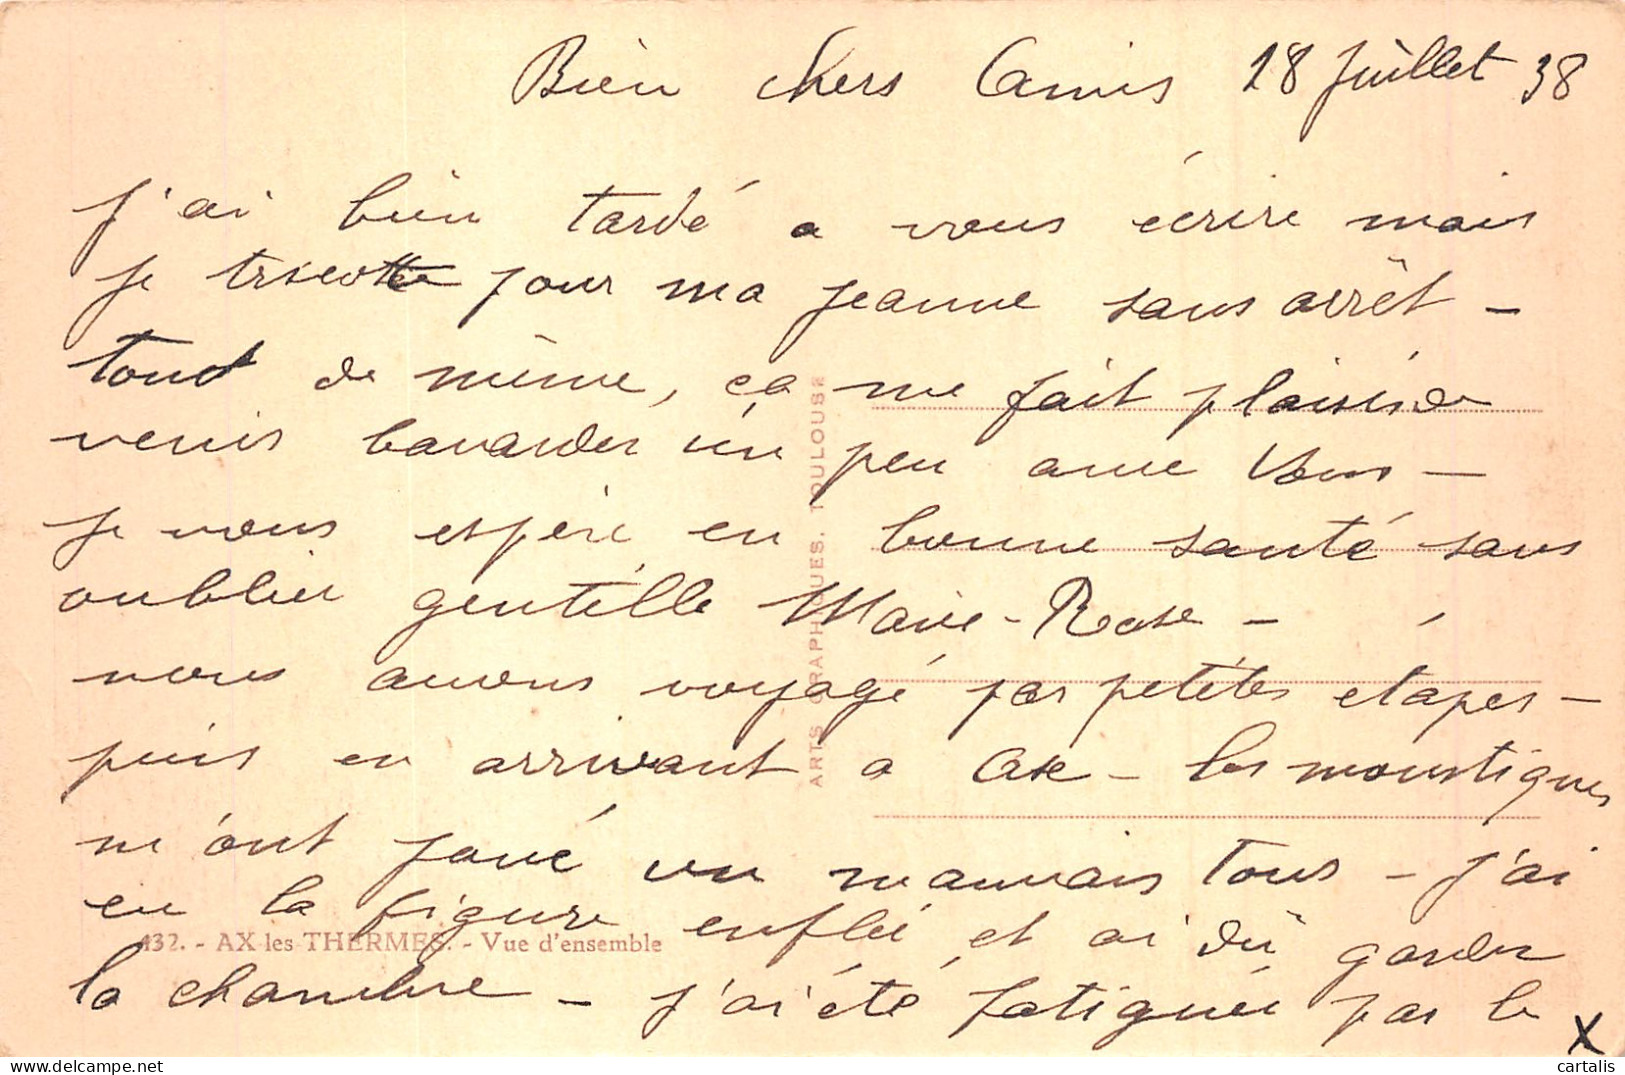 Bien chers Amis 18 juillet 38
j'ai bien tardé a vous écrire mais
je tricotte pour ma Jeanne sans arrêt -
tout de même, ça me fait plaisir de
venir bavarder un peu avec Vous -
je vous espère en bonne santé sans
oublier gentille Marie-Rose -
nous avons voyagé par petites étapes -
puis en arrivant a Ax - les moustiques
m'ont joué un mauvais tour - j'ai
eu la figure enflée et ai dû garder
la chambre - j'ai été fatiguée par le
X
132. - AX-les THERMES. - Vue d'ensemble
ARTS GRAPHIQUES. TOULOUSE
cartalis